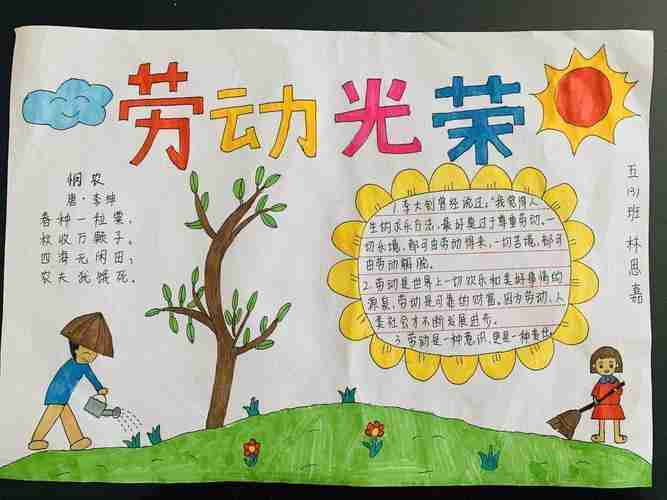 劳动光荣
悯农
唐·李绅
春种一粒粟,
秋收万颗子。
四海无闲田,
农夫犹饿死。
1李大钊曾经说过:"我觉得人
生的求乐方法,最好莫过于尊重劳动。一
切乐境,都可由劳动得来,一切苦境,都可
由劳动解脱。
2.劳动是世界上一切欢乐和美好事情的
源泉,劳动是可靠的财富。因为劳动,人
类社会才不断发展进步。
3.劳动是一种意识,更是一种
五(3)班 林思嘉